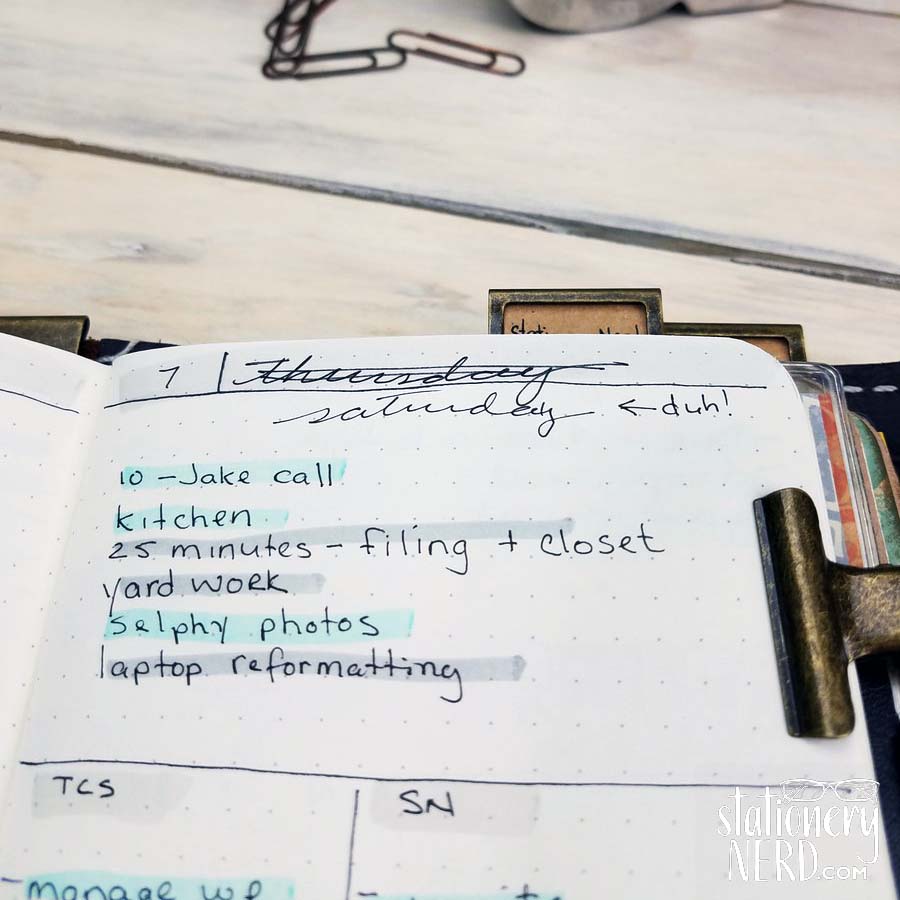 Nerd
7 thursday
saturday ← duh!
10 - Jake call
kitchen
25 minutes - filing + closet
yard work
selphy photos
laptop reformatting
TCS
SN
- manage wp
stationery
NERD.COM